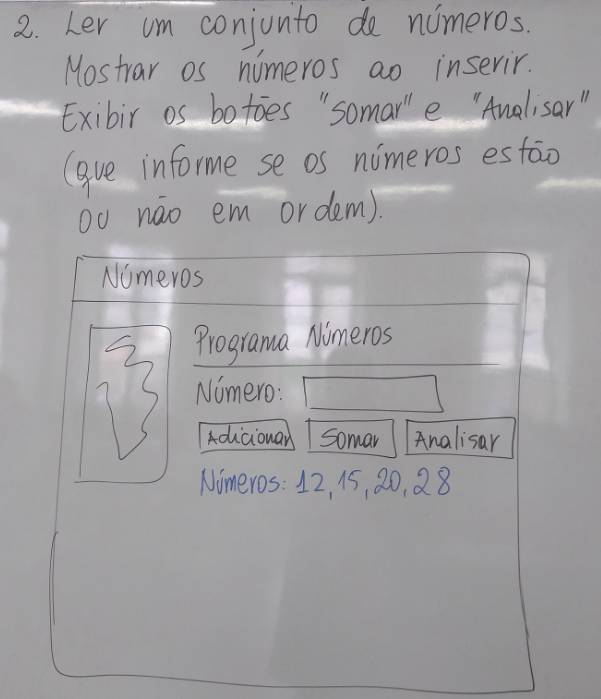 2. Ler um conjunto de números.
Mostrar os números ao inserir.
Exibir os botões "Somar" e "Analisar"
(que informe se os números estão
ou não em ordem).
Números
Programa Números
Número:
Adicionar Somar Analisar
Números: 12, 15, 20, 28